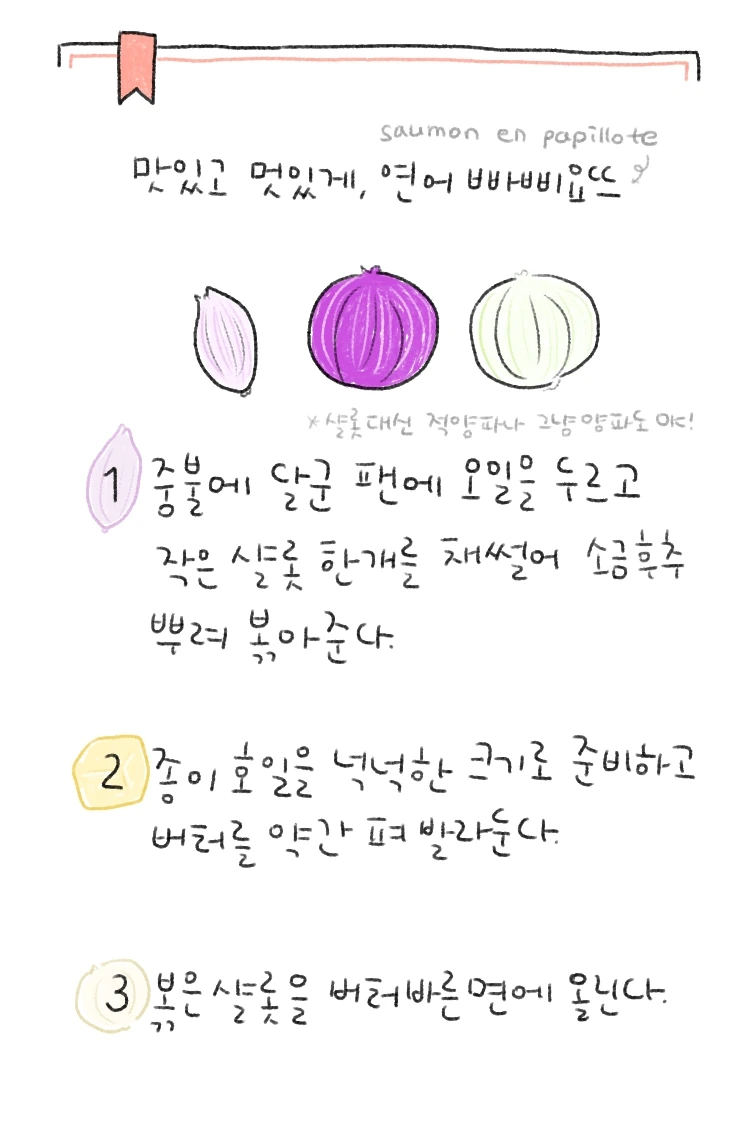 saumon en papillote
맛있고 멋있게, 연어 빠삐요뜨
*샬롯대신 적양파나 그냥양파도 OK!
1 중불에 달군 팬에 오일을 두르고
작은 샬롯 한개를 채썰어 소금후추
뿌려 볶아준다.
2 종이 호일을 넉넉한 크기로 준비하고
버터를 약간 펴 발라둔다.
3 볶은샬롯을 버터바른면에 올린다.